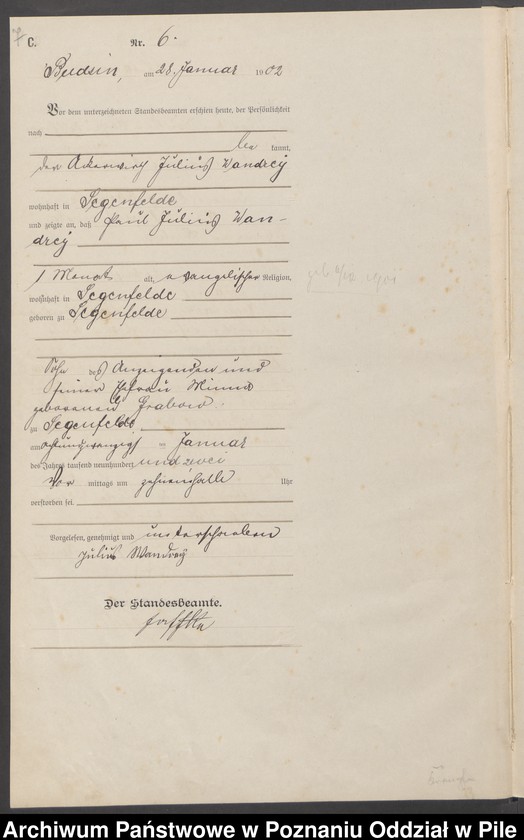 C. Nr. 6.
Budsin, am 28. Januar 1902
Vor dem unterzeichneten Standesbeamten erschien heute, der Persönlichkeit
nach
be kannt,
der Ackerwirth Julius Wandrey
wohnhaft in Segenfelde
und zeigte an, daß Paul Julius Wan-
drey
1 Monat alt, evangelischer Religion,
wohnhaft in Segenfelde
geboren zu Segenfelde
Sohn des Anzeigenden und
seiner Ehefrau Minna
geborenen Grabow
zu Segenfelde
am achtundzwanzigs ten Januar
des Jahres tausend neunhundert und zwei
Vor mittags um zehneinhalb Uhr
verstorben sei
Vorgelesen, genehmigt und unterschrieben
Julius Wandrey
Der Standesbeamte.
Archiwum Państwowe w Poznaniu Oddział w Pile